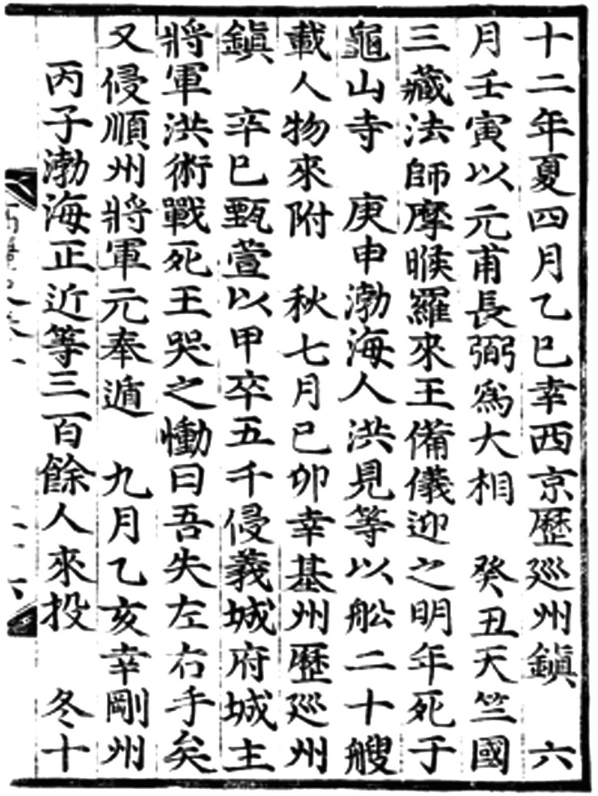 十二年夏四月乙巳幸西京歷巡州鎮　六
月壬寅以元甫長弼爲大相　癸丑天竺國
三藏法師摩睺羅來王備儀迎之明年死于
龜山寺　庚申渤海人洪見等以舩二十艘
載人物來附　秋七月己卯幸基州歷巡州
鎮　辛巳甄萱以甲卒五千侵義城府城主
將軍洪術戰死王哭之慟曰吾失左右手矣
又侵順州將軍元奉遁　九月乙亥幸剛州
丙子渤海正近等三百餘人來投　冬十